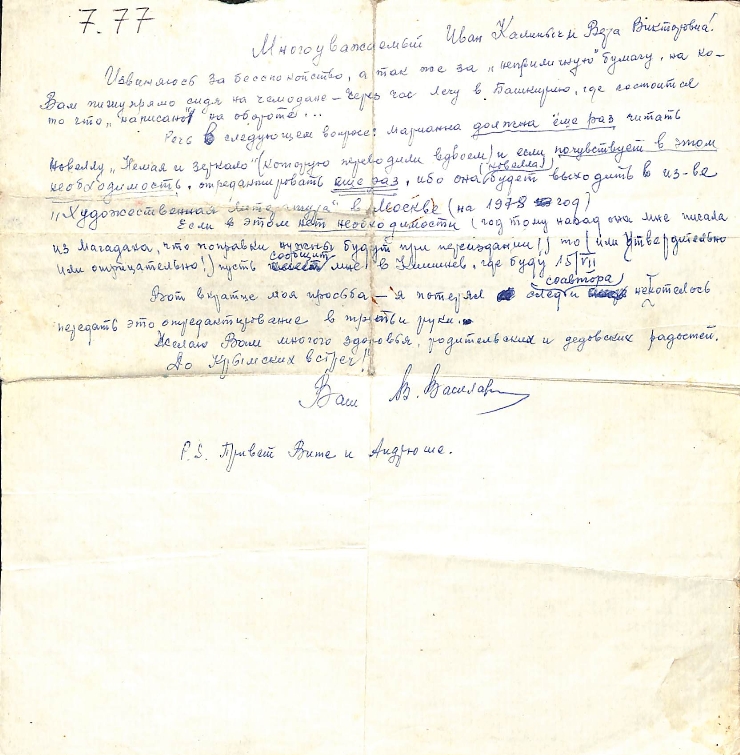 7.77
Многоуважаемый Иван Калиныч и Вера Викторовна!
Извиняюсь за бесспокойство, а так же за „неприличную" бумагу, на ко-
Вам пишу прямо сидя на чемодане – через час лечу в Башкирию, где состоится
то что „написано" на обороте...
Речь в следующем вопросе: Марианна должна еще раз читать
новеллу „Немая и зеркало" (которую переводили вдвоем) и если почувствует в этом
(новелла)
необходимость, отредактировать еще раз, ибо она будет выходить в из-ве
„Художественная литература" в Москве (на 1978 год)
Если в этом нет необходимости (год тому назад она мне писала
из Магадана, что поправки нужны будут при переиздании!) то (или утвердительно
сообщит
или отрицательно!) пусть мне в Кишинев, где буду 15/VII
соавтора
Вот вкратце моя просьба – я потерял следы и нехотелось
передать это отредактирование в третьи руки.
Желаю Вам многого здоровья, родительских и дедовских радостей.
До Крымских встреч!
Ваш В. Василаке
P.S. Привет Вите и Андрюше.